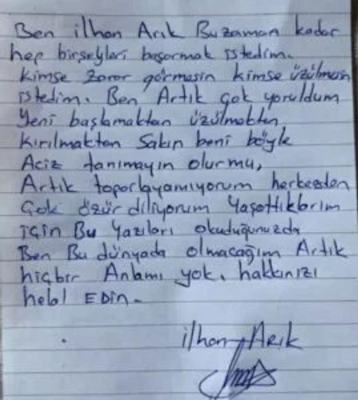 Ben ilhan Arık Bu zaman kadar
hep birşeyleri başarmak istedim.
Kimse zarar görmesin kimse üzülmesin
istedim. Ben Artık çok yoruldum
Yeni başlamaktan üzülmekten
kırılmaktan Sakın beni böyle
Aciz tanımayın olurmu,
Artık toparlayamıyorum herkezden
Çok özür diliyorum Yaşattıklarım
için Bu Yazıları okuduğunuzda
Ben Bu dünyada olmacağım Artık
hiçbir Anlamı yok, hakkınızı
helal EDin.
ilhan Arık